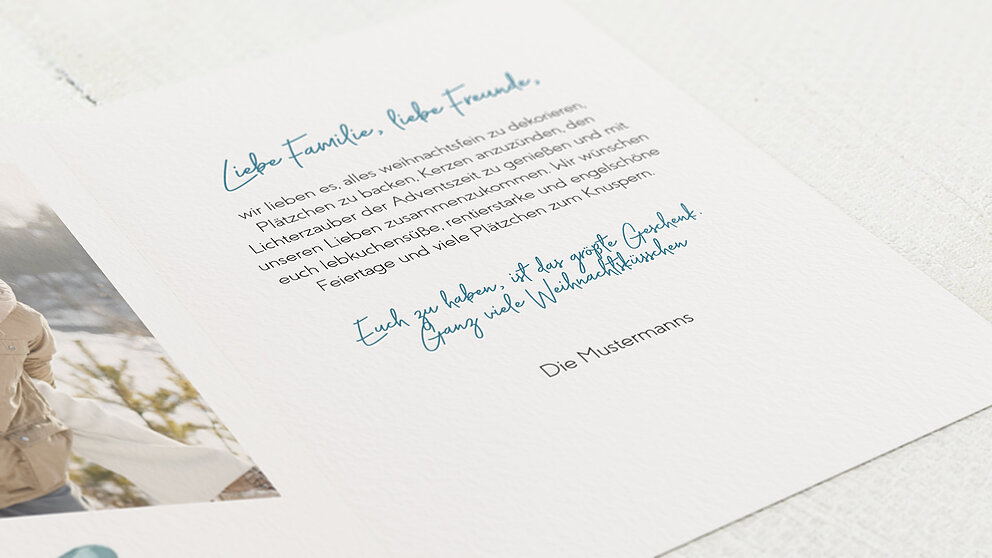 Liebe Familie, liebe Freunde,
wir lieben es, alles weihnachtsfein zu dekorieren,
Plätzchen zu backen, Kerzen anzuzünden, den
Lichterzauber der Adventszeit zu genießen und mit
unseren Lieben zusammenzukommen. Wir wünschen
euch lebkuchensüße, rentierstarke und engelschöne
Feiertage und viele Plätzchen zum Knuspern.
Euch zu haben, ist das größte Geschenk.
Ganz viele Weihnachtsküsschen
Die Mustermanns